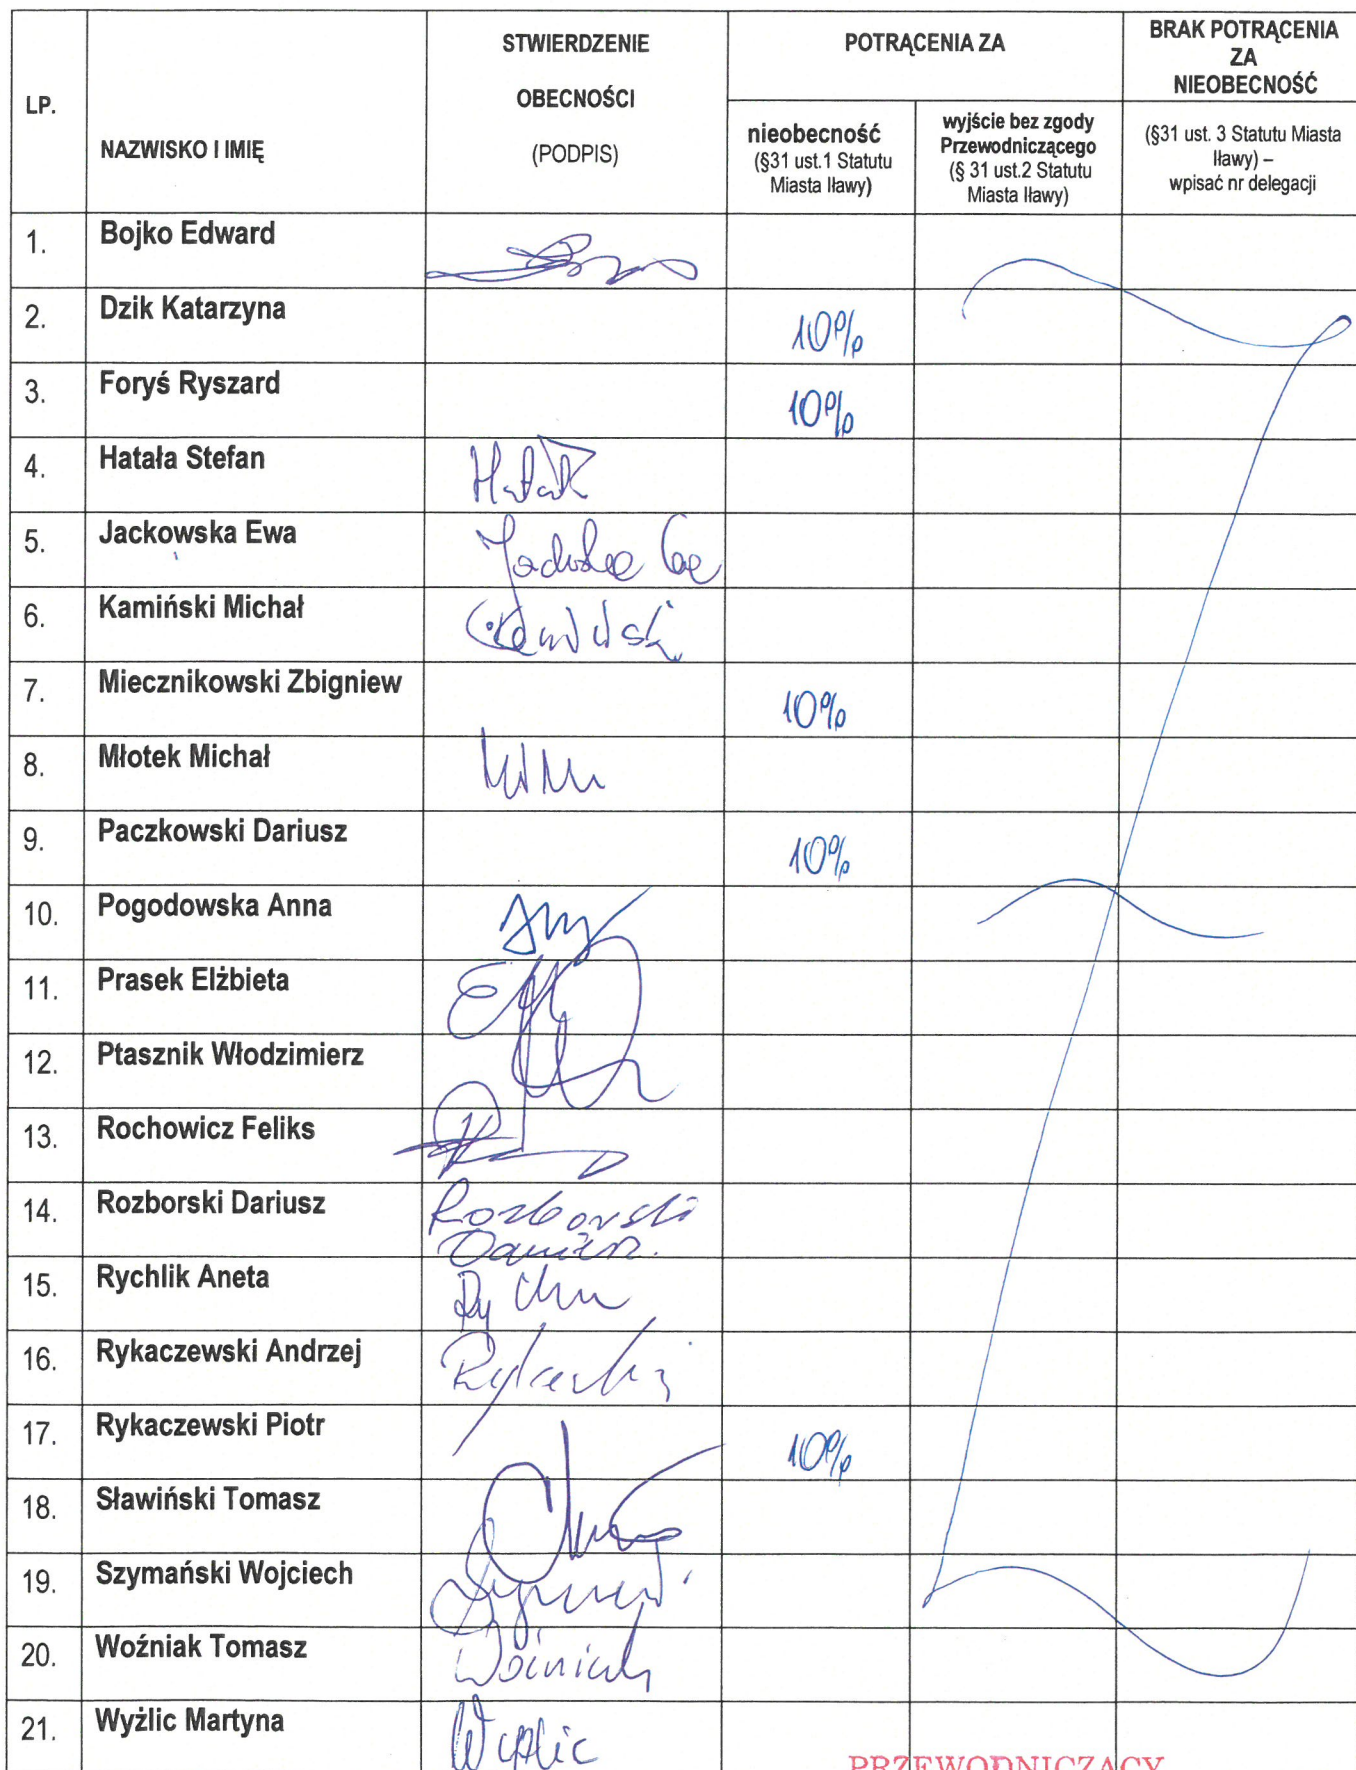 LP.
NAZWISKO I IMIĘ
STWIERDZENIE
OBECNOŚCI
(PODPIS)
POTRĄCENIA ZA
BRAK POTRĄCENIA
ZA
NIEOBECNOŚĆ
nieobecność
(§31 ust.1 Statutu
Miasta Iławy)
wyjście bez zgody
Przewodniczącego
(§ 31 ust.2 Statutu
Miasta Iławy)
(§31 ust. 3 Statutu Miasta
Iławy) –
wpisać nr delegacji
1. Bojko Edward
2. Dzik Katarzyna 10%
3. Foryś Ryszard 10%
4. Hatała Stefan
5. Jackowska Ewa
6. Kamiński Michał
7. Miecznikowski Zbigniew 10%
8. Młotek Michał
9. Paczkowski Dariusz 10%
10. Pogodowska Anna
11. Prasek Elżbieta
12. Ptasznik Włodzimierz
13. Rochowicz Feliks
14. Rozborski Dariusz Rozborski
Dariusz.
15. Rychlik Aneta
16. Rykaczewski Andrzej
17. Rykaczewski Piotr 10%
18. Sławiński Tomasz
19. Szymański Wojciech
20. Woźniak Tomasz Woźniak
21. Wyżlic Martyna Wyżlic
PRZEWODNICZĄCY